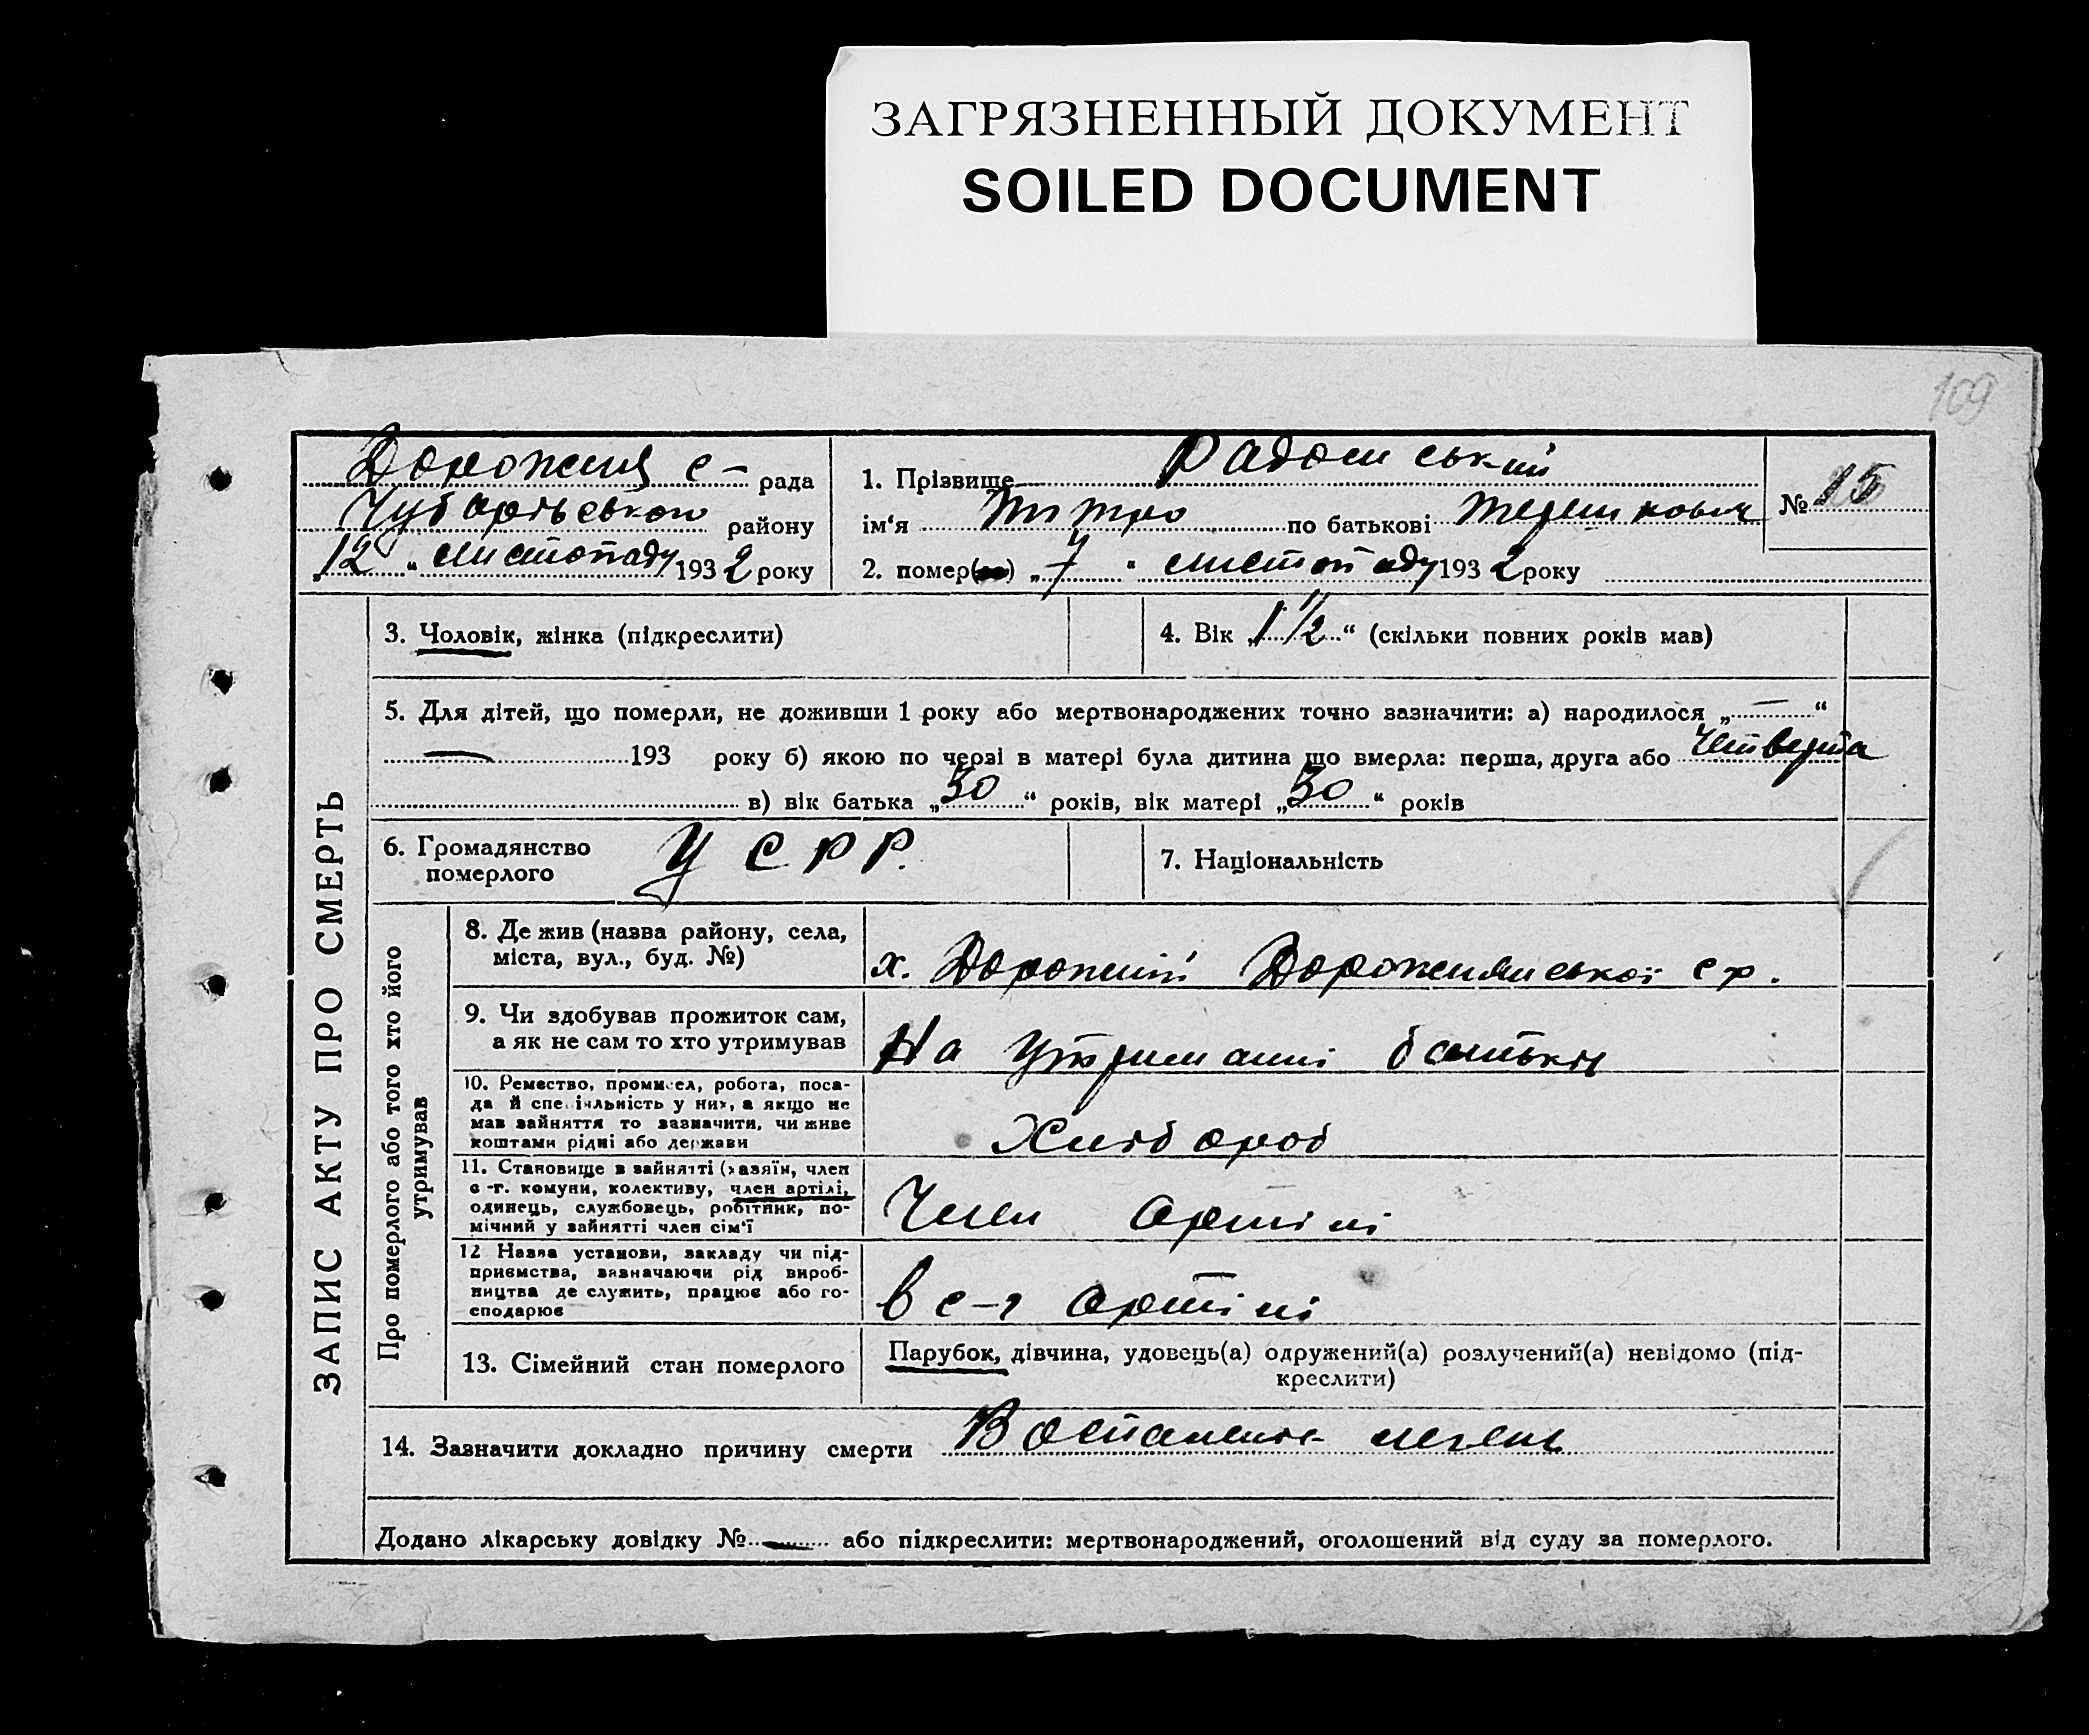 ЗАГРЯЗНЕННЫЙ ДОКУМЕНТ
SOILED DOCUMENT
109
с- рада
району
„12“ листопаду 1932 року
1. Прізвище
№ 15
ім‘я по батькові
2. помер(ла) „7“ листопаду 1932 року
ЗАПИС АКТУ ПРО СМЕРТЬ
3. Чоловік, жінка (підкреслити)
4. Вік „1 1/2“ (скільки повних років мав)
5. Для дітей, що померли, не доживши 1 року або мертвонароджених точно зазначити: а) народилося „—“
— 193 року б) якою по черзі в матері була дитина що вмерла: перша, друга або четверта
в) вік батька „30“ років, вік матері „30“ років
6. Громадянство
померлого
У С Р Р.
7. Національність
Про померлого або того хто його
утримував
8. Де жив (назва району, села,
міста, вул., буд. №)
х.
9. Чи здобував прожиток сам,
а як не сам то хто утримував
На утриманні батьків
10. Ремество, промисел, робота, поса-
да й спеціяльність у них, а якщо не
мав зайняття то зазначити, чи живе
коштами рідні або держави
Хлібороб
11. Становище в зайнятті (хазяїн, член
с-г. комуни, колективу, член артілі,
одинець, службовець, робітник, по-
мічний у зайнятті член сім‘ї
Член артілі
12 Назва установи, закладу чи під-
приємства, зазначаючи рід вироб-
ництва де служить, працює або го-
сподарює
в с-г артілі
13. Сімейний стан померлого
Парубок, дівчина, удовець(а) одружений(а) розлучений(а) невідомо (під-
креслити)
14. Зазначити докладно причину смерти легень
Додано лікарську довідку №— або підкреслити: мертвонароджений, оголошений від суду за померлого.